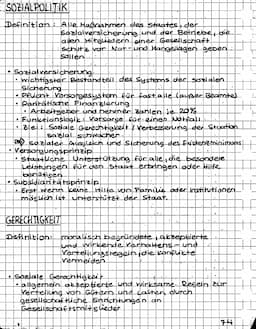 SOZIALPOLITIK
Definition: Alle Maßnahmen des Staates, der
Sozialversicherung und der Betriebe, die
den Mitgliedern einer Gesellschaft
Schutz vor Not- und Mangellagen geben
sollen
• Sozialversicherung
• wichtigster Bestandteil des Systems der sozialen
Sicherung
Vorsorgesystem für fast alle (außer Beamte)
• Paritätische Finanzierung
• Arbeitgeber und nehmer zahlen je
• Funktionslogik: Vorsorge für einen Notfall
• Ziel: Soziale Gerechtigkeit / Verbesserung der Situation
sozial Schwacher
sozialer Ausgleich und Sicherung des Existenzminimums
• Versorgungsprinzip
• Staatliche Unterstützung für alle, die besondere
Leistungen für den Staat erbringen oder Hilfe
benötigen
• Subsidiaritätsprinzip
• Erst wenn keine Hilfe von Familie oder Institutionen
möglich ist unterstützt der Staat.
GERECHTIGKEIT
Definition: moralisch begründete, akzeptierte
und wirkende Verhaltens- und
Verteilungsregeln, die Konflikte
vermeiden
• Soziale Gerechtigkeit
• allgemein akzeptierte und wirksame Regeln zur
Verteilung von Gütern und Lasten durch
gesellschaftliche Einrichtungen an
Gesellschaftsmitglieder